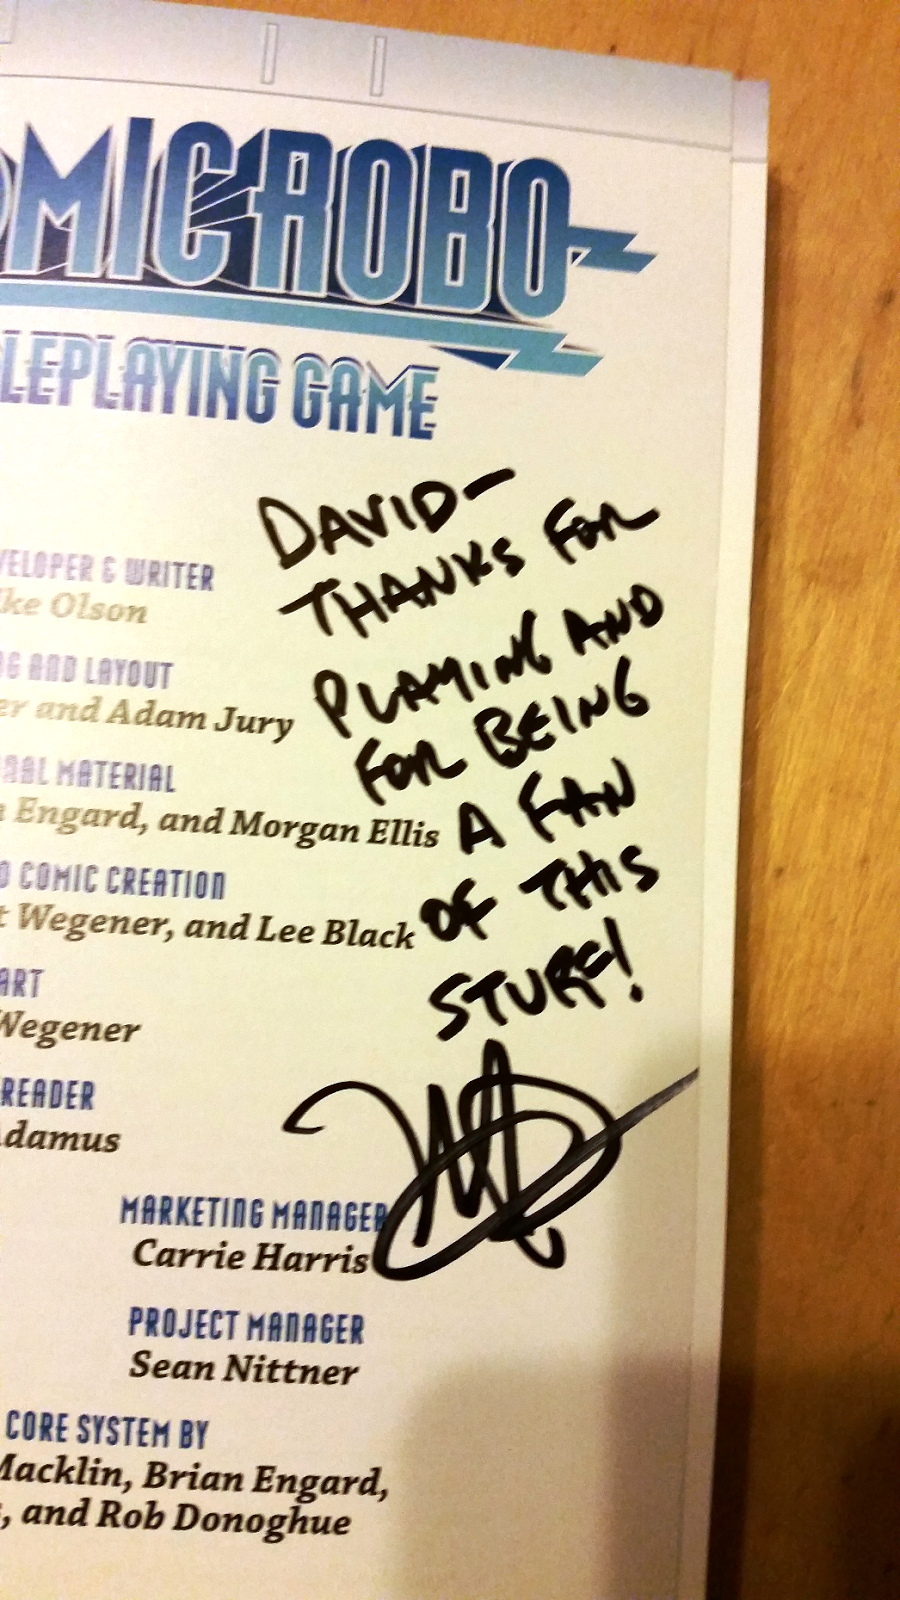 OMIC ROBO
LEPLAYING GAME
DAVID-
THANKS FOR
PLAYING AND
FOR BEING
A FAN
OF THIS
STUFF!
VELOPER & WRITER
ke Olson
G AND LAYOUT
er and Adam Jury
NAL MATERIAL
n Engard, and Morgan Ellis
O COMIC CREATION
t Wegener, and Lee Black
ART
Wegener
READER
damus
MARKETING MANAGER
Carrie Harris
PROJECT MANAGER
Sean Nittner
CORE SYSTEM BY
Macklin, Brian Engard,
, and Rob Donoghue